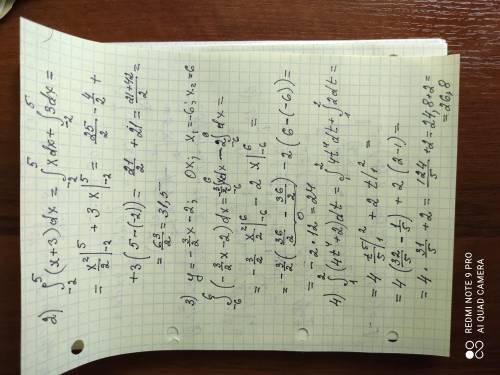 2) ∫₋₂⁵ (x+3) dx = ∫₋₂⁵ x dx + ∫₋₂⁵ 3 dx =
= x²/2 |₋₂⁵ + 3x |₋₂⁵ = 25/2 - 4/2 +
+ 3 (5-(-2)) = 21/2 + 21 = 21+42/2 =
= 63/2 = 31,5
3) y = -3/2 x - 2; Ox; x₁ = -6; x₂ = 6
∫₋₆⁶ (-3/2 x - 2) dx = -3/2 ∫₋₆⁶ x dx - 2 ∫₋₆⁶ dx =
= -3/2 · x²/2 |₋₆⁶ - 2 x |₋₆⁶ =
= -3/2 (36/2 - 36/2) - 2 (6-(-6)) =
0
= -2 · 12 = 24
4) ∫₁² (4t⁴+2) dt = ∫₁² 4t⁴ dt + ∫₁² 2 dt =
= 4 t⁵/5 |₁² + 2 t |₁² =
= 4 (32/5 - 1/5) + 2 (2-1) =
= 4 · 31/5 + 2 = 124/5 + 2 = 24,8+2=
= 26,8
REDMI NOTE 9 PRO
AI QUAD CAMERA